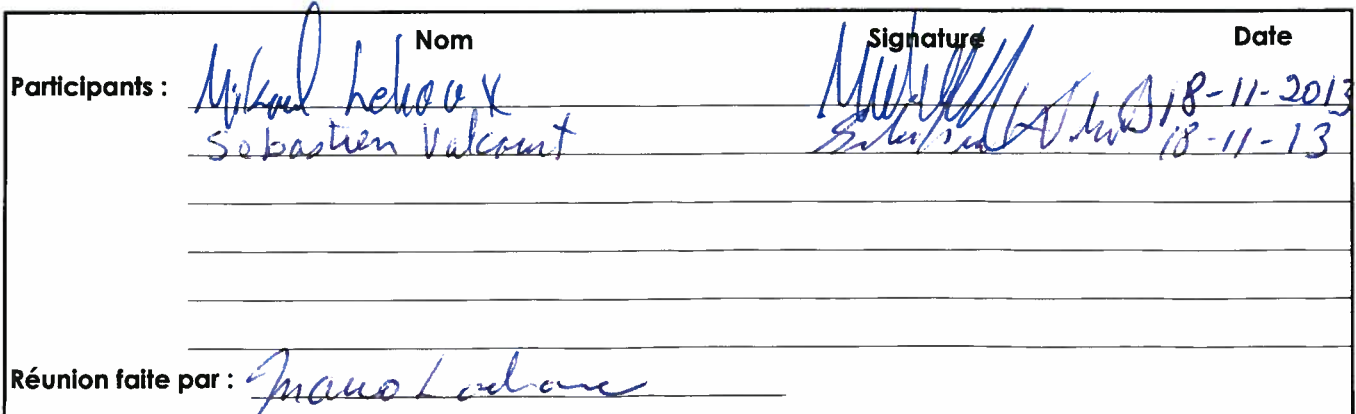 Nom Signature Date
Participants : Mikael Lehoux 18-11-2013
Sebastien Valcourt 18-11-13
Réunion faite par : Mario